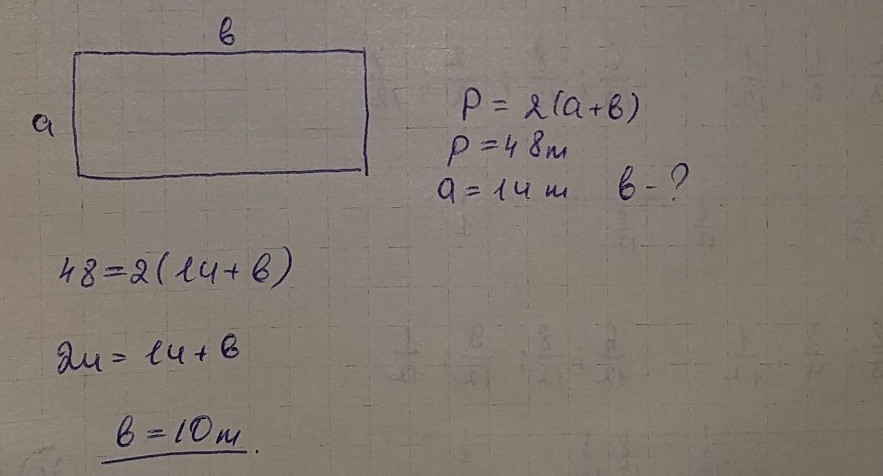 в
a
P = 2(a+в)
P = 48m
a = 14m в - ?
48 = 2(14 + в)
24 = 14 + в
в = 10m.